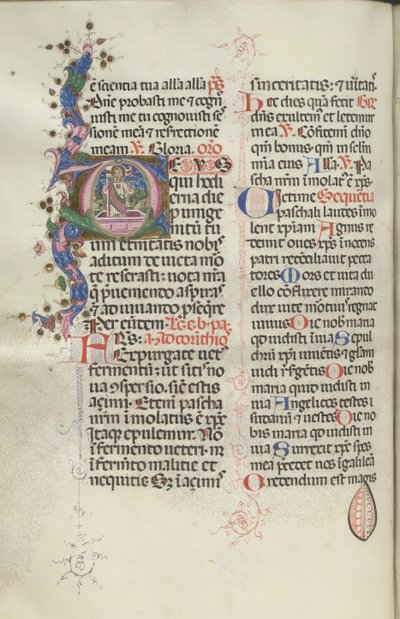 e scientia tua alla alla ps
Dñe probasti me & cogno
uisti me tu cognouisti ses
sionem meã & resurrectionẽ
meam V. Gloria. oro
DEVS
qui hodi
erna die
p unige
nitũ tu
um eternitatis nobis
aditum deuicta mor
te reserasti: uota nr̃a
que pueniendo aspiras
& adiuuando psequere
Per eundem. Lc. e. b. pa.
FRS: ad corinthios
Expurgate uet
fermentũ: ut sitis no
ua conspersio. sic estis
açimi. Etenim pascha
nr̃m imolatus ẽ xp̃s
Itaque epulemur. Nõ
in fermento ueteri. neque
in fermẽto malitie et
nequitie Sz in açimis
sinceritatis: & uitatis
Hec dies quã fecit
dñs exultem & letemur
in ea V. Cõfitemini dño
qm̃ bonus: qm̃ in sclm̃
mĩa eius Alla V. Pa
scha nr̃m imolat' ẽ xp̃s.
Uictime Sequẽtia
paschali laudes imol
lent xpiani Agnus re
demit oues xp̃s inocens
patri recõciliauit pecca
tores Mors et uita du
ello conflixere mirando
dux uite mortuus regnat
uiuus Dic nob' maria
quid uidisti in uia Sepul
chrũ xpi uiuentis & glam
uidi resurgẽtis Dic nob'
maria quid uidisti in
uia Angelicos testes
sudariũ & uestes Dic no
bis maria qd uidisti in
uia Surrexit xp̃s spes
mea precedet uos in galilea
Credendum est magis